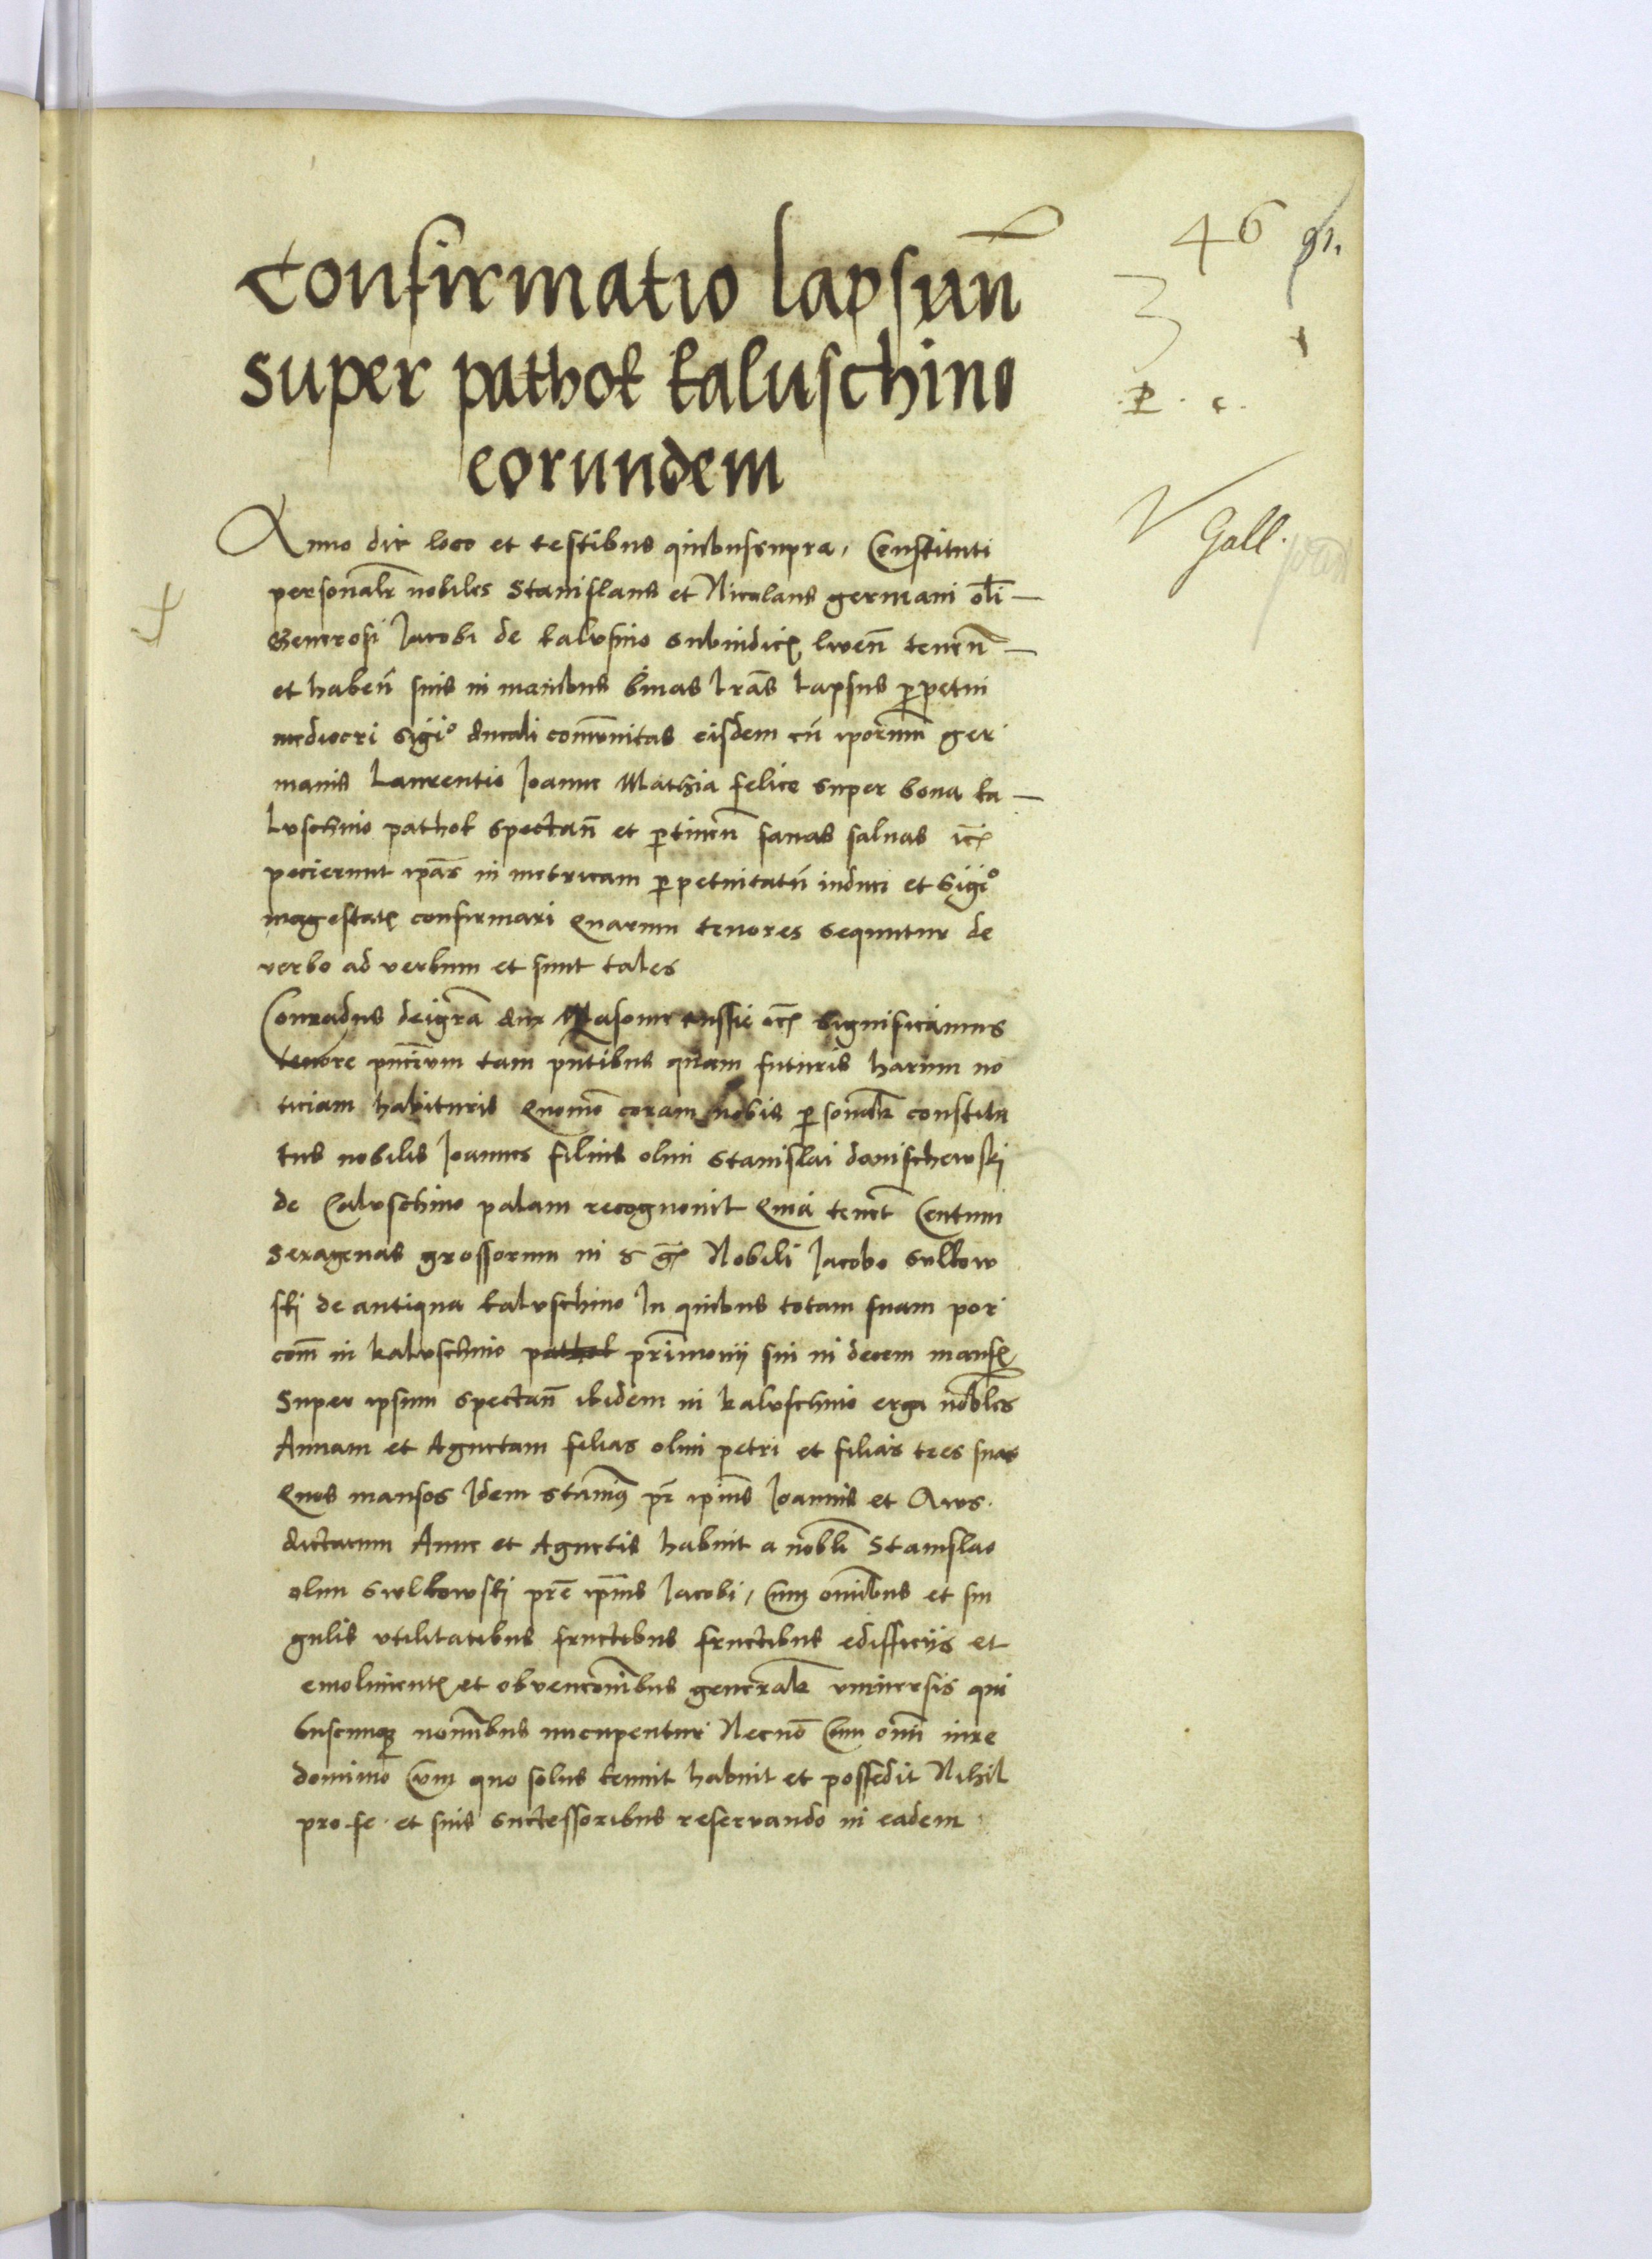 46 91.
Confirmatio lapsuū
super pathok kaluschino
eorundem
P. c.
Gall.
Anno die loco et testibus quibussupra, Constituti
personalr nobiles Stanislaus et Nicolaus germani oli
Generosi Jacobi de kalusino subiudicis tenen
et haben suis in manibus binas lras lapsus perpetui
mediocri sigio ducali comunitas eisdem cū iporum ger
manis Laurentio Joanne Mathia felice super bona ka
luschino pathok spectan et pertinen sanas saluas
pecierunt ipas in metricam perpetuitatū induci et sigio
magestatis confirmari Quarum tenores sequntur de
verbo ad verbum et sunt tales
Conradus deigra dux Masouie russie etc significamus
tenore pncium tam pntibus quam futuris harum no
ticiam habituris Quomo coram nobis personalr constitu
tus nobilis Joannes filius olim Stanislai danischewski
de Caluschino palam recognouit Quia tenet Centum
sexagenas grossorum in Nobili Jacobo sulkow
ski de antiqua kaluschino In quibus totam suam por
com in kaluschino pathok primonij sui in decem mansis
Super ipsum spectan ibidem in kaluschino erga nobles
Annam et Agnetam filias olim petri et filias tres suas
Quos mansos Idem stanius pr ipius Joannis et Auus
dictarum Anne et Agnetis habuit a nobli Stanislao
olim sulkowski pre ipius Jacobi, cum omibus et sin
gulis vtilitatibus fructibus fructibus edifficijs et
emolimentis et obuencionibus generalr vniuersis qui
buscunque nominibus nucupentur Necno Cum omi iure
dominio Cum quo solus tenuit habuit et possedit Nihil
pro se et suis suctessoribus reseruando in eadem